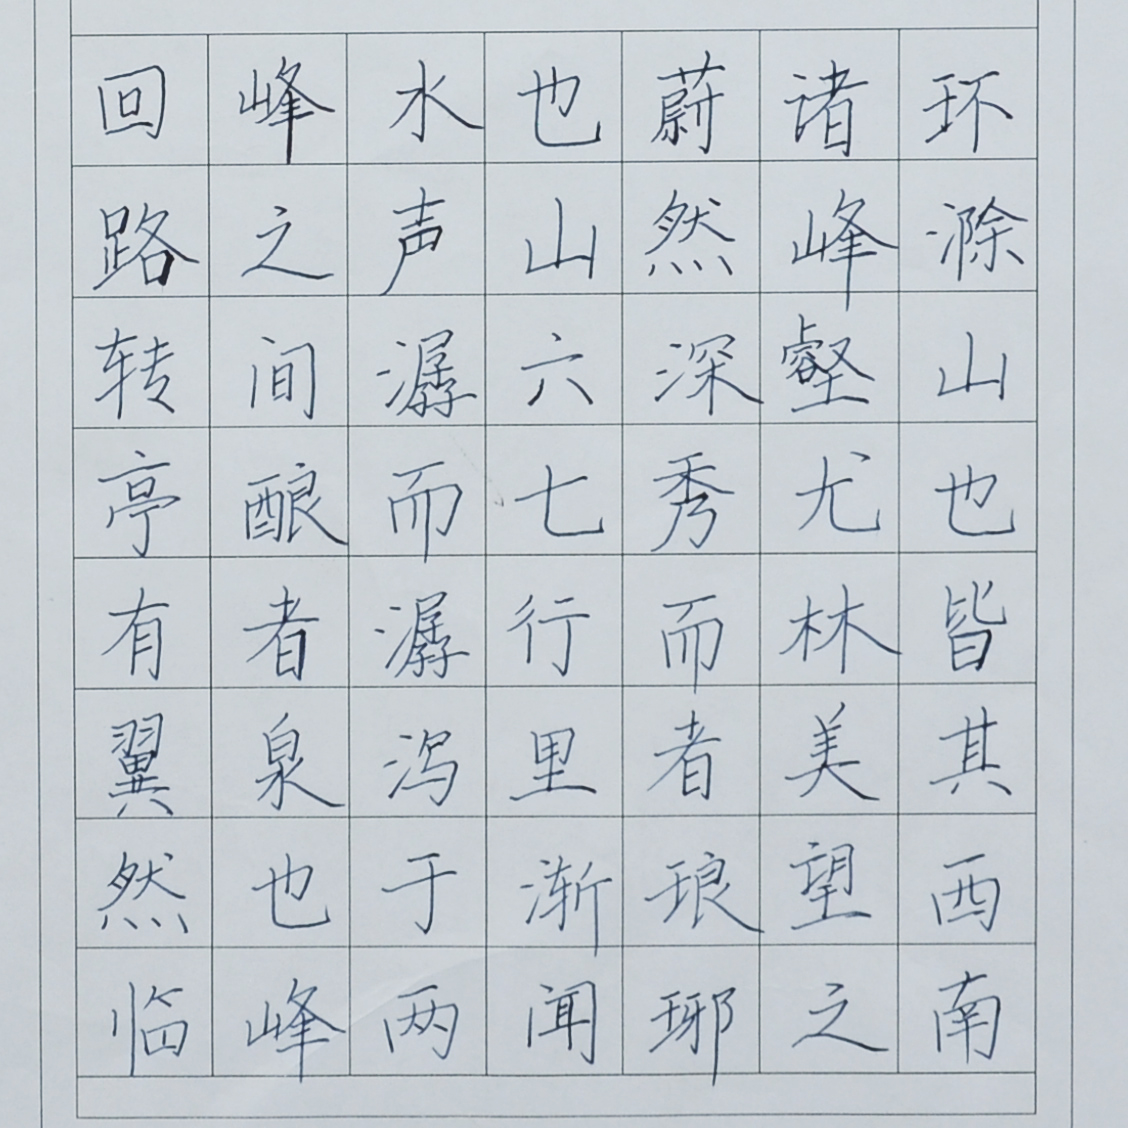 环滁山也皆其西南
诸峰壑尤林美望之
蔚然深秀而者琅琊
也山六七行里渐闻
水声潺而潺泻于两
峰之间酿者泉也峰
回路转亭有翼然临